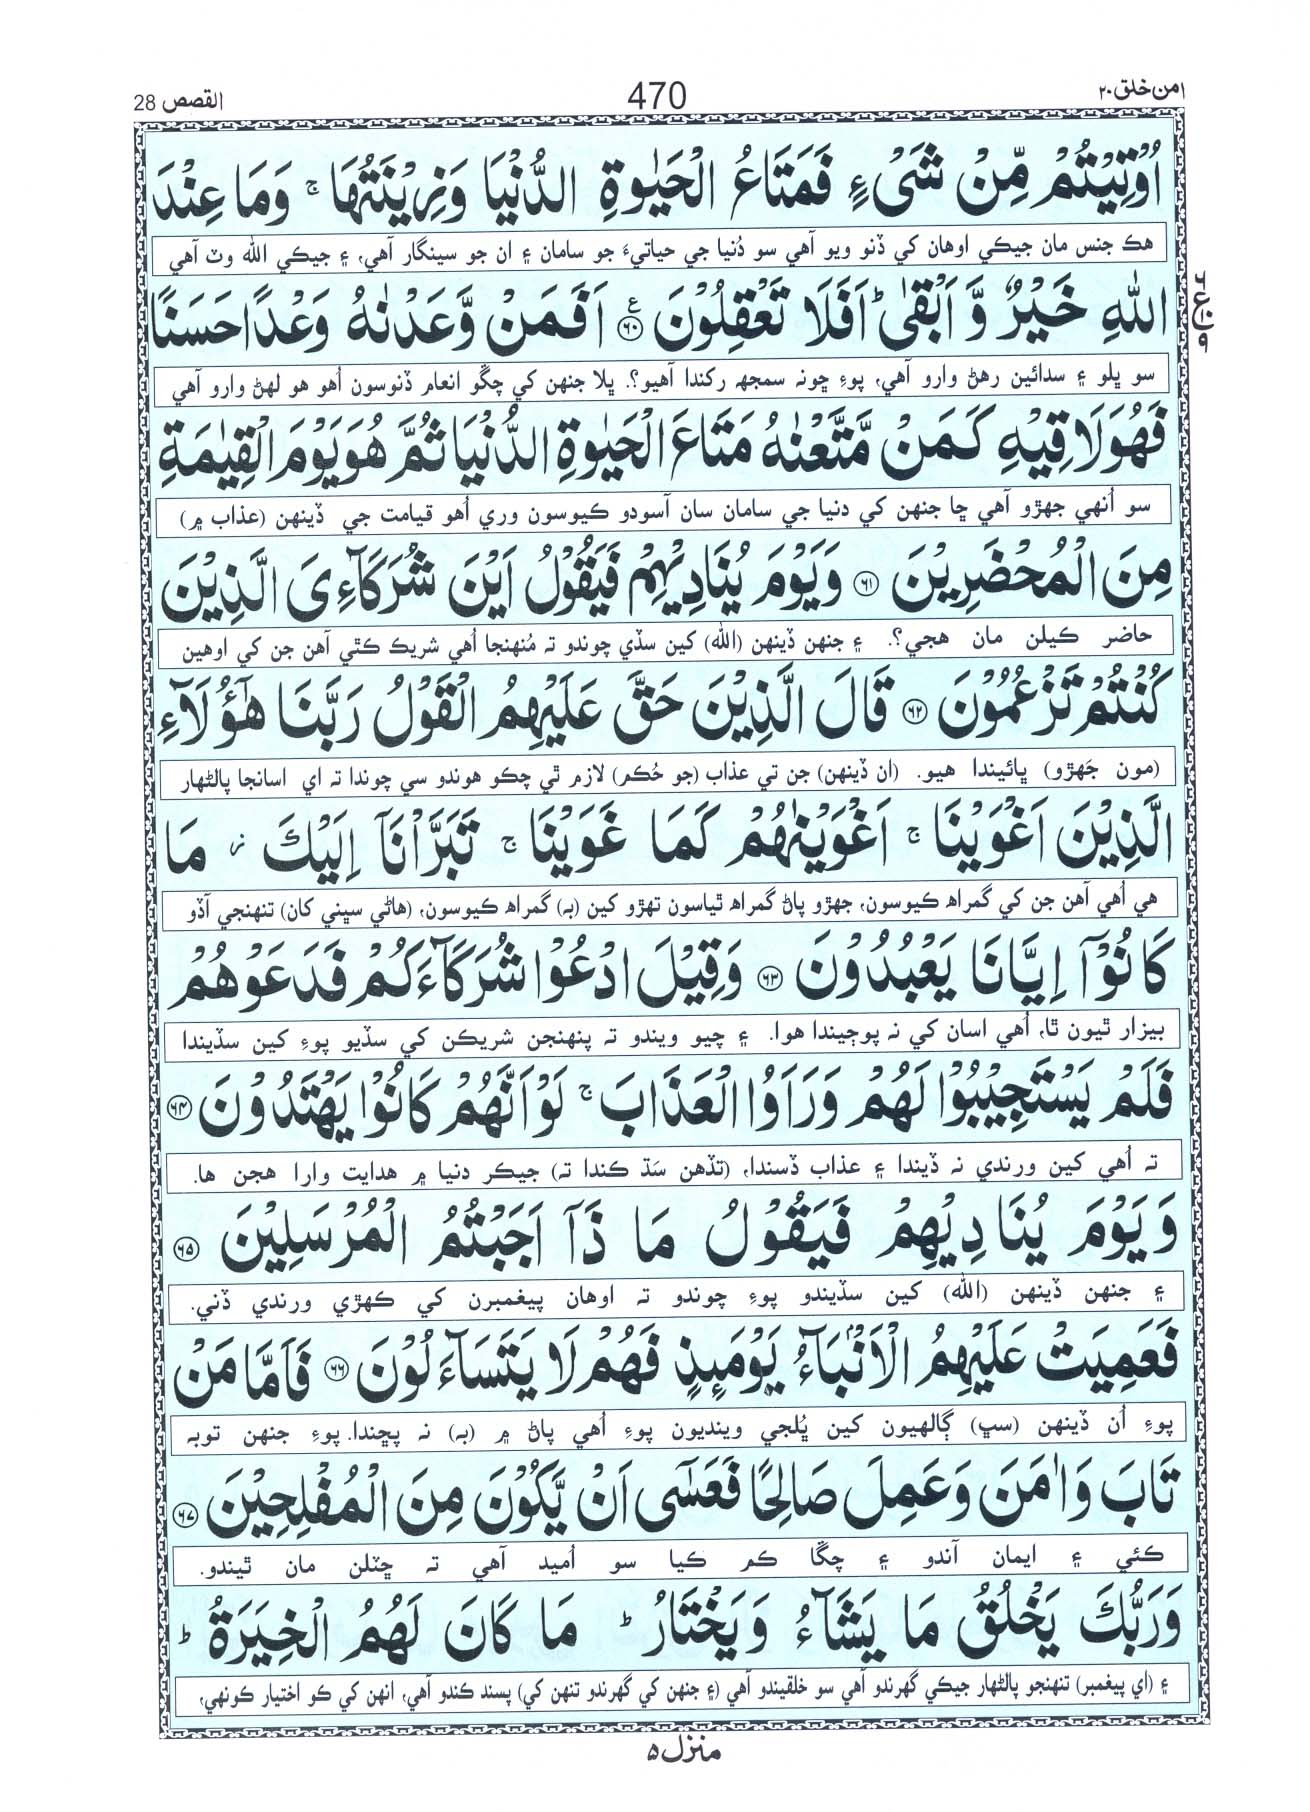 امن خلق ۲۰
470
القصص 28
اُوْتِيْتُمْ مِّنْ شَىْءٍ فَمَتَاعُ الْحَيٰوةِ الدُّنْيَا وَزِيْنَتُهَا ۚ وَمَا عِنْدَ
هڪ جنس مان جيڪي اوهان کي ڏنو ويو آهي سو دُنيا جي حياتيءَ جو سامان ۽ ان جو سينگار آهي، ۽ جيڪي الله وٽ آهي
اللّٰهِ خَيْرٌ وَّ اَبْقٰى ؕ اَفَلَا تَعْقِلُوْنَ ﴿۶۰﴾ اَفَمَنْ وَّعَدْنٰهُ وَعْدًا حَسَنًا
سو ڀلو ۽ سدائين رهڻ وارو آهي، پوءِ ڇونہ سمجهہ رکندا آهيو؟. ڀلا جنهن کي چڱو انعام ڏنوسون اُهو هو لهڻ وارو آهي
فَهُوَ لَاقِيْهِ كَمَنْ مَّتَّعْنٰهُ مَتَاعَ الْحَيٰوةِ الدُّنْيَا ثُمَّ هُوَ يَوْمَ الْقِيٰمَةِ
سو اُنهي جهڙو آهي ڇا جنهن کي دنيا جي سامان سان آسودو ڪيوسون وري اُهو قيامت جي ڏينهن (عذاب ۾)
مِنَ الْمُحْضَرِيْنَ ﴿۶۱﴾ وَيَوْمَ يُنَادِيْهِمْ فَيَقُوْلُ اَيْنَ شُرَكَآءِىَ الَّذِيْنَ
حاضر ڪيلن مان هجي؟. ۽ جنهن ڏينهن (الله) کين سڏي چوندو تہ مُنهنجا اُهي شريڪ ڪٿي آهن جن کي اوهين
كُنْتُمْ تَزْعُمُوْنَ ﴿۶۲﴾ قَالَ الَّذِيْنَ حَقَّ عَلَيْهِمُ الْقَوْلُ رَبَّنَا هٰٓؤُلَآءِ
(مون جَهڙو) ڀائيندا هيو. (ان ڏينهن) جن تي عذاب (جو حُڪم) لازم ٿي چڪو هوندو سي چوندا تہ اي اسانجا پالڻهار
الَّذِيْنَ اَغْوَيْنَا ۚ اَغْوَيْنٰهُمْ كَمَا غَوَيْنَا ۚ تَبَرَّاْنَاۤ اِلَيْكَ ز مَا
هي اُهي آهن جن کي گمراه ڪيوسون، جهڙو پاڻ گمراه ٿياسون تهڙو کين (بہ) گمراه ڪيوسون، (هاڻي سڀني کان) تنهنجي آڏو
كَانُوْۤا اِيَّانَا يَعْبُدُوْنَ ﴿۶۳﴾ وَقِيْلَ ادْعُوْا شُرَكَآءَكُمْ فَدَعَوْهُمْ
بيزار ٿيون ٿا، اُهي اسان کي نہ پوڄيندا هوا. ۽ چيو ويندو تہ پنهنجن شريڪن کي سڏيو پوءِ کين سڏيندا
فَلَمْ يَسْتَجِيْبُوْا لَهُمْ وَرَاَوُا الْعَذَابَ ۚ لَوْ اَنَّهُمْ كَانُوْا يَهْتَدُوْنَ ﴿۶۴﴾
تہ اُهي کين ورندي نہ ڏيندا ۽ عذاب ڏسندا، (تڏهن سَڌ ڪندا تہ) جيڪر دنيا ۾ هدايت وارا هجن ها.
وَيَوْمَ يُنَادِيْهِمْ فَيَقُوْلُ مَا ذَاۤ اَجَبْتُمُ الْمُرْسَلِيْنَ ﴿۶۵﴾
۽ جنهن ڏينهن (الله) کين سڏيندو پوءِ چوندو تہ اوهان پيغمبرن کي ڪهڙي ورندي ڏني.
فَعَمِيَتْ عَلَيْهِمُ الْاَنْۢبَآءُ يَوْمَىِٕذٍ فَهُمْ لَا يَتَسَآءَلُوْنَ ﴿۶۶﴾ فَاَمَّا مَنْ
پوءِ اُن ڏينهن (سڀ) ڳالهيون کين ڀُلجي وينديون پوءِ اُهي پاڻ ۾ (بہ) نہ پڇندا. پوءِ جنهن توبہ
تَابَ وَاٰمَنَ وَعَمِلَ صَالِحًا فَعَسٰٓى اَنْ يَّكُوْنَ مِنَ الْمُفْلِحِيْنَ ﴿۶۷﴾
ڪئي ۽ ايمان آندو ۽ چڱا ڪم ڪيا سو اُميد آهي تہ ڇٽلن مان ٿيندو.
وَرَبُّكَ يَخْلُقُ مَا يَشَآءُ وَيَخْتَارُ ؕ مَا كَانَ لَهُمُ الْخِيَرَةُ ؕ
۽ (اي پيغمبر) تنهنجو پالڻهار جيڪي گهرندو آهي سو خلقيندو آهي (۽ جنهن کي گهرندو تنهن کي) پسند ڪندو آهي، انهن کي ڪو اختيار ڪونهي،
منزل ۵